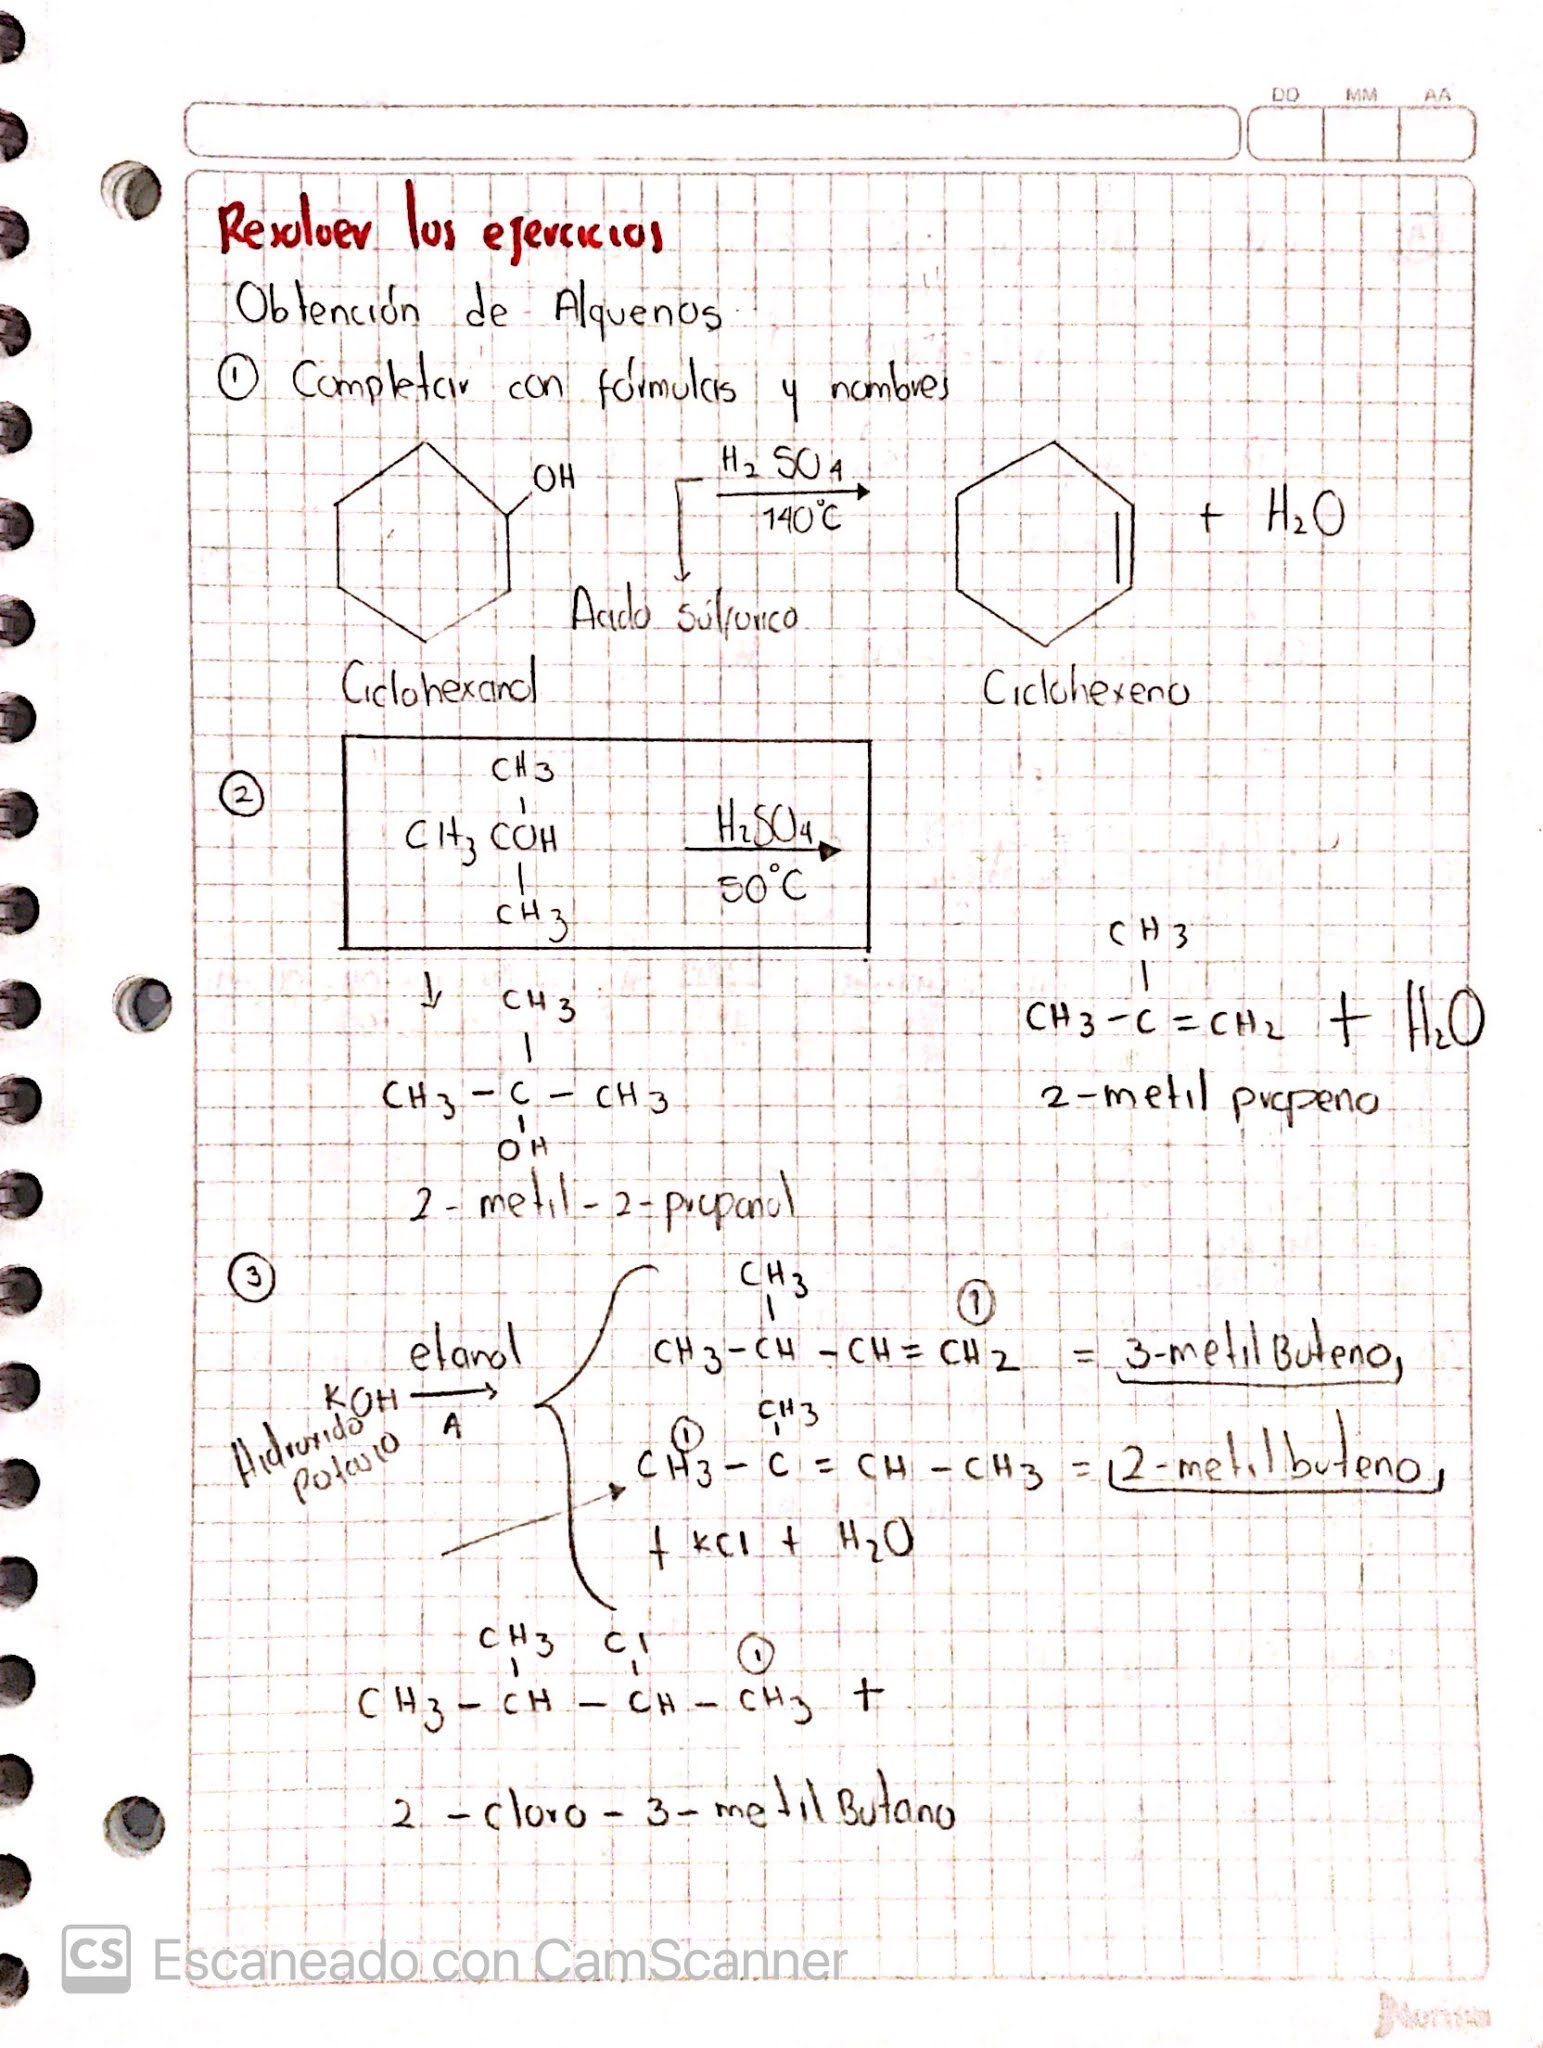 DD MM AA
Resolver los ejercicios
Obtención de Alquenos
① Completar con fórmulas y nombres
OH
H₂SO₄
140°C
+ H₂O
Acido súlfurico
Ciclohexanol
Ciclohexeno
②
CH3
CH3 COH
CH3
H₂SO₄
50°C
↓
CH3
CH3 - C - CH3
OH
2 - metil - 2 - propanol
CH3
CH3 - C = CH2 + H₂O
2 - metil propeno
③
etanol
KOH →
A
Hidroxido
Potasio
CH3
①
CH3 - CH - CH = CH2 = 3-metil Buteno,
CH3
①
CH3 - C = CH - CH3 = 2-metil buteno,
+ KCl + H₂O
CH3 Cl ①
CH3 - CH - CH - CH3 +
2 - cloro - 3 - metil Butano
CS Escaneado con CamScanner